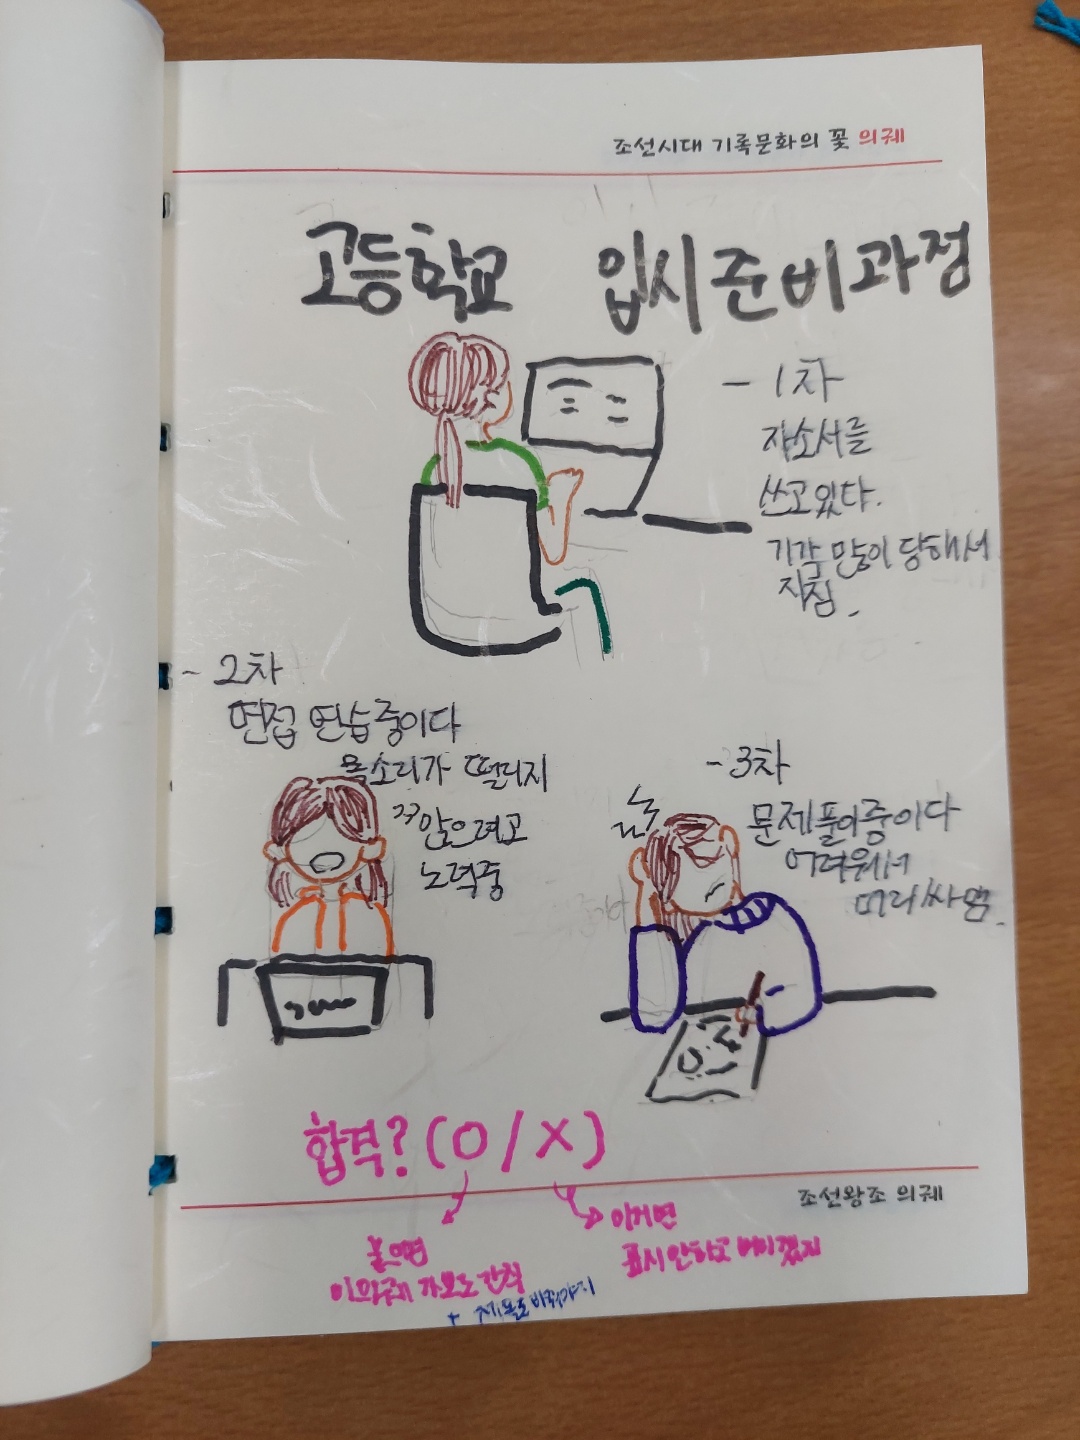 조선시대 기록문화의 꽃 의궤
고등학교 입시준비과정
- 1차
자소서를
쓰고있다.
기각 많이 당해서
지침.
- 2차
면접 연습중이다
목소리가 떨리지
않으려고
노력중
- 3차
문제풀이중이다
어려워서
머리 싸맴.
합격? (O / X)
조선왕조 의궤
붙으면
이 의궤 가보로 간직
이거면
표시안하고